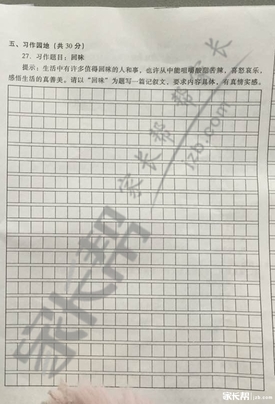 五、习作园地(共 30 分)
27. 习作题目:回味
提示:生活中有许多值得回味的人和事,也许从中能咀嚼酸甜苦辣、喜怒哀乐,
感悟生活的真善美。请以“回味”为题写一篇记叙文。要求内容具体,有真情实感。
家长帮
jzb.com
家长帮
家长帮 jzb.com